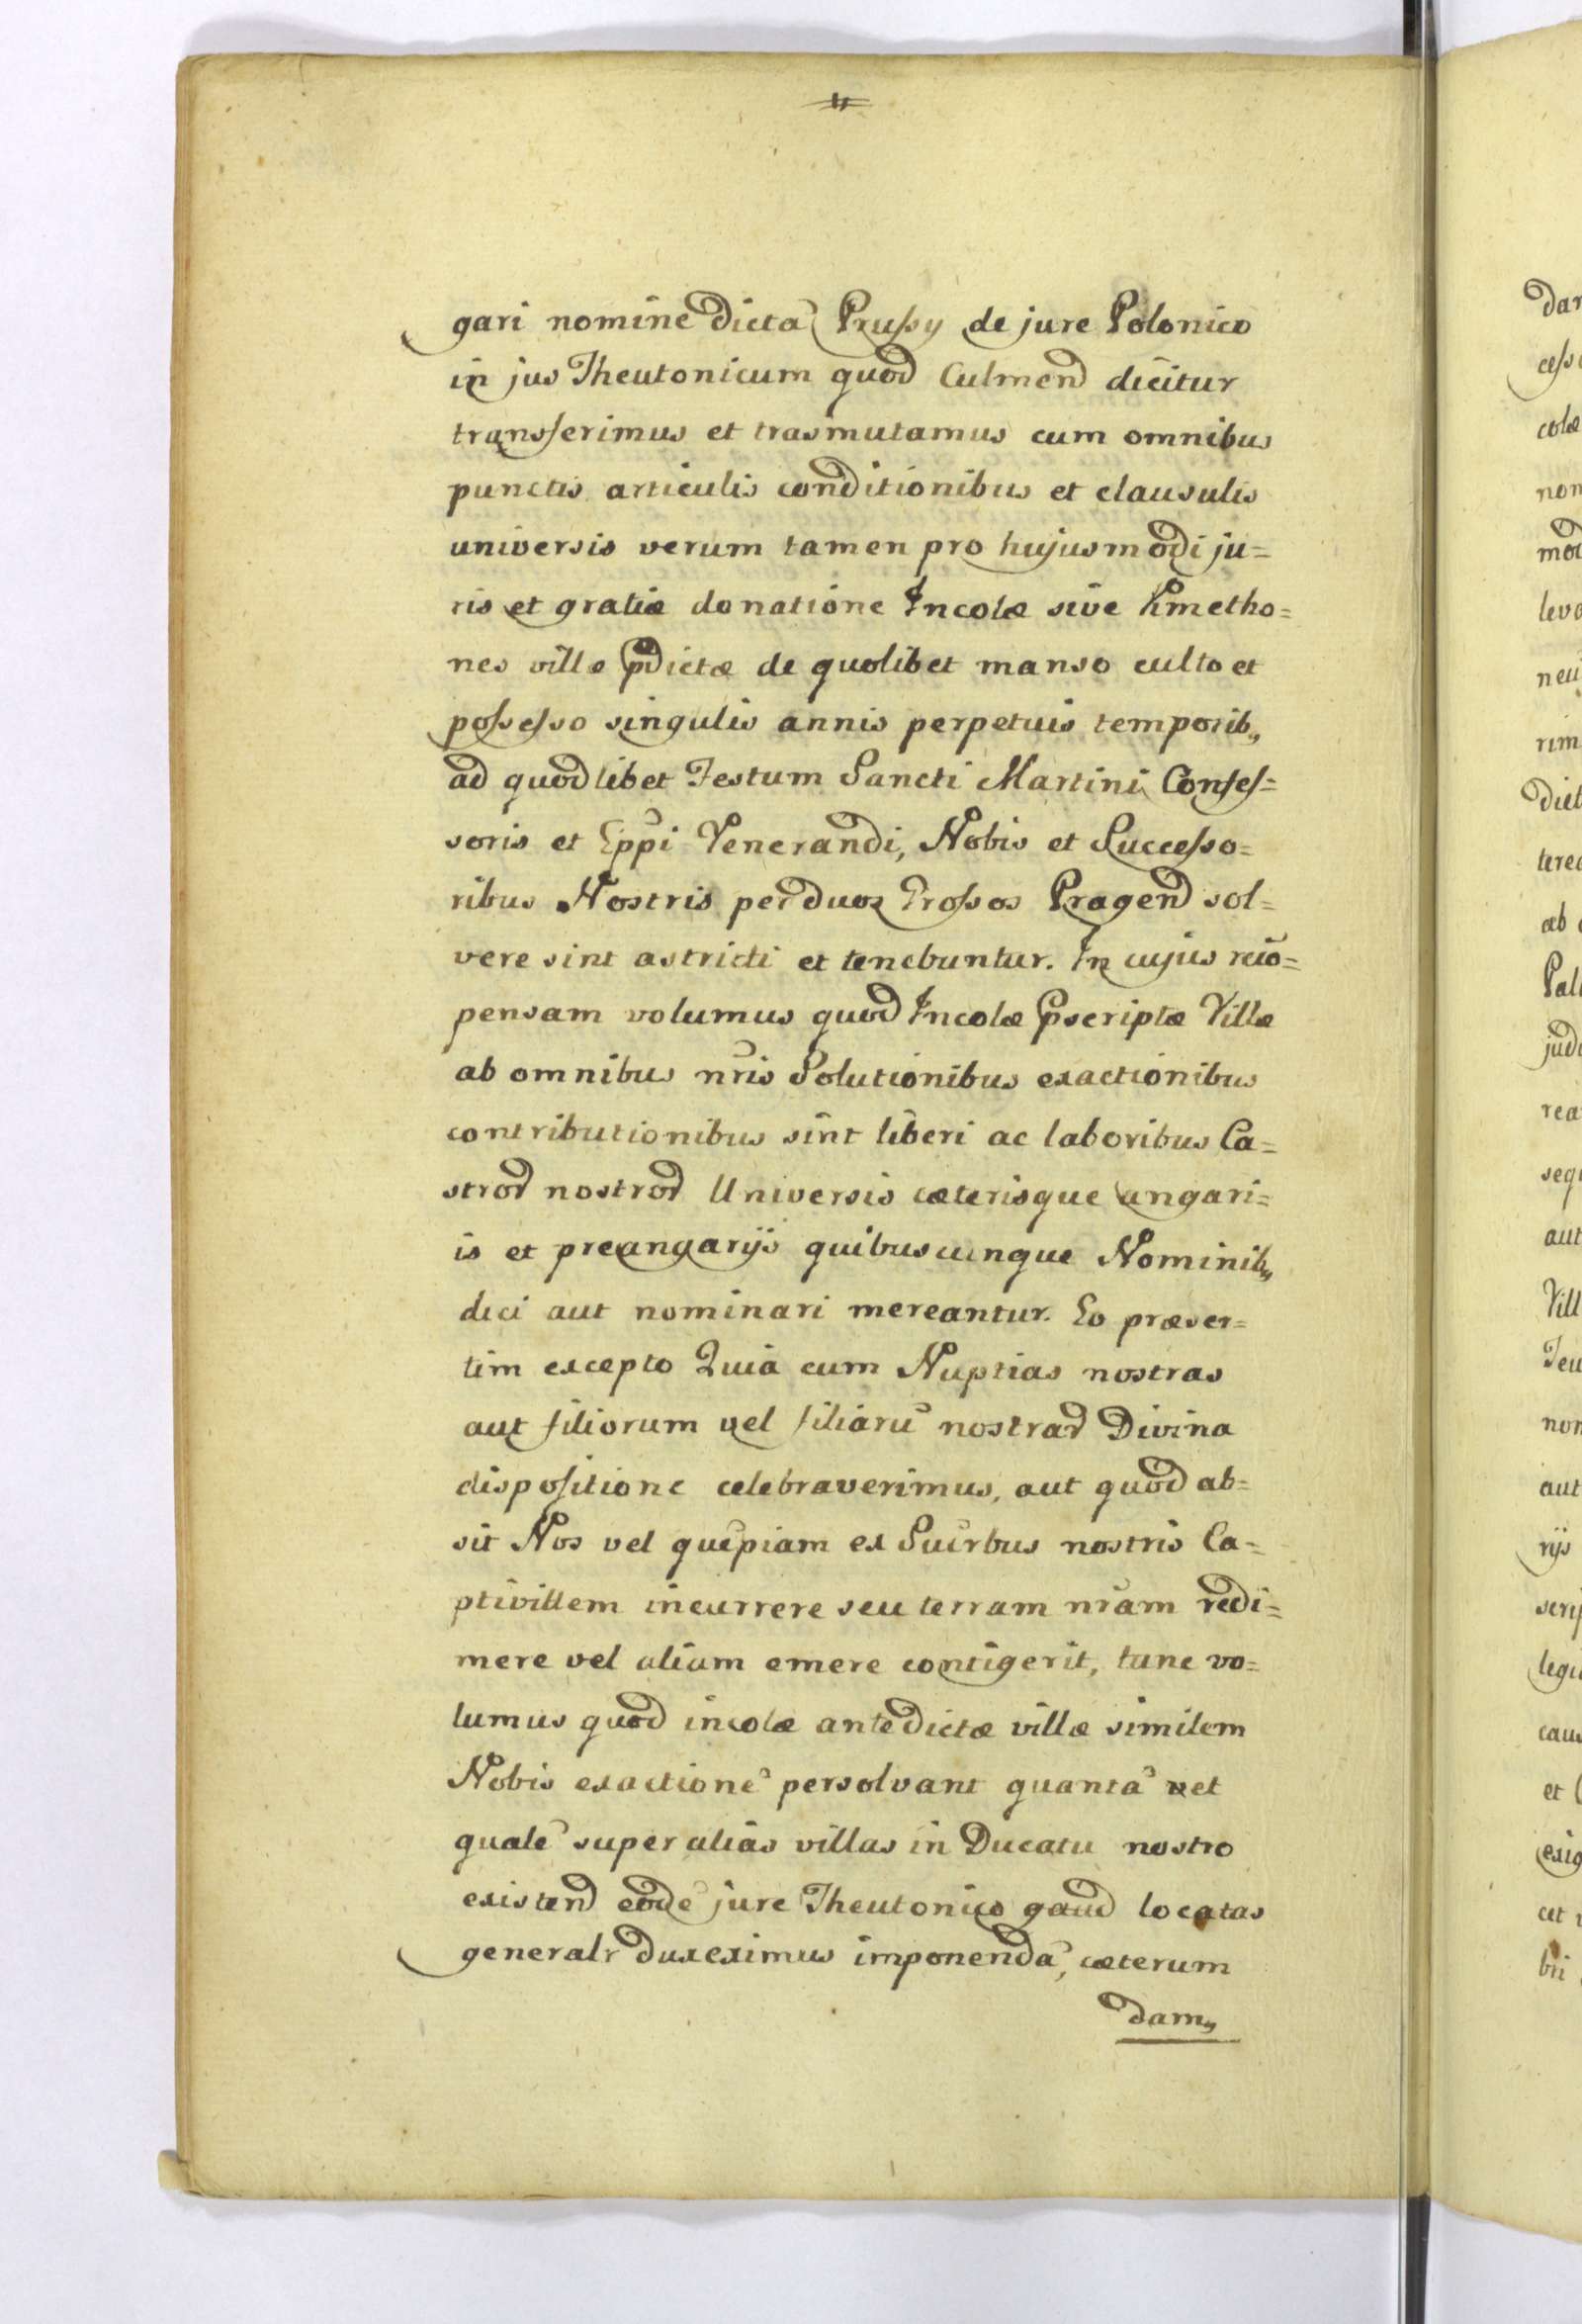 gari nomine dictã Prussy de jure Polonico
in jus Theutonicum quod Culmend dicitur
transferimus et trasmutamus cum omnibus
punctis articulis conditionibus et clausulis
universis verum tamen pro hujusmodi ju=
ris et gratiæ donatione Incolæ sive Kmetho=
nes villæ pdictæ de quolibet manso culto et
possesso singulis annis perpetuis temporib„
ad quodlibet Festum Sancti Martini Confes=
soris et Eppi Venerandi, Nobis et Successo=
ribus Nostris per duos Grossos Pragend sol=
vere sint astricti et tenebuntur. In cujus recõ=
pensam volumus quod Incolæ pscriptæ Villæ
ab omnibus nris Solutionibus exactionibus
contributionibus sint liberi ac laboribus Ca=
strod nostrod Universis cæterisque angari=
is et preangarijs quibuscunque Nominib„
dici aut nominari mereantur. Eo præser=
tim excepto Quia cum Nuptias nostras
aut filiorum vel filiarũ nostrad Divina
dispositione celebraverimus, aut quod ab=
sit Nos vel quẽpiam ex Sucrbus nostris Ca=
ptivittem incurrere seu terram nram redi=
mere vel aliam emere contigerit, tunc vo=
lumus quod incolæ antedictæ villæ similem
Nobis exactionẽ persolvant quantã vel
qualẽ super alias villas in Ducatu nostro
existend eodẽ jure Theutonico gaud locatas
generalr duxerimus imponendã, cæterum
dam„
dar